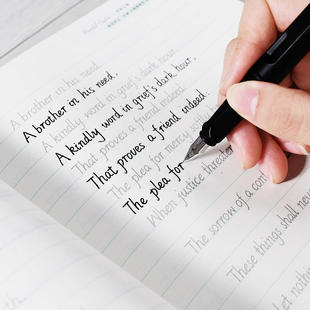 A brother in his need
A brother in his need.
A kindly word in grief's dark hour
A kindly word in grief's dark hour.
That proves a friend indeed
That proves a friend indeed.
The plea for mercy softly
The plea for
When justice threatens
The sorrow of a cont
These things shall never
Let nothing